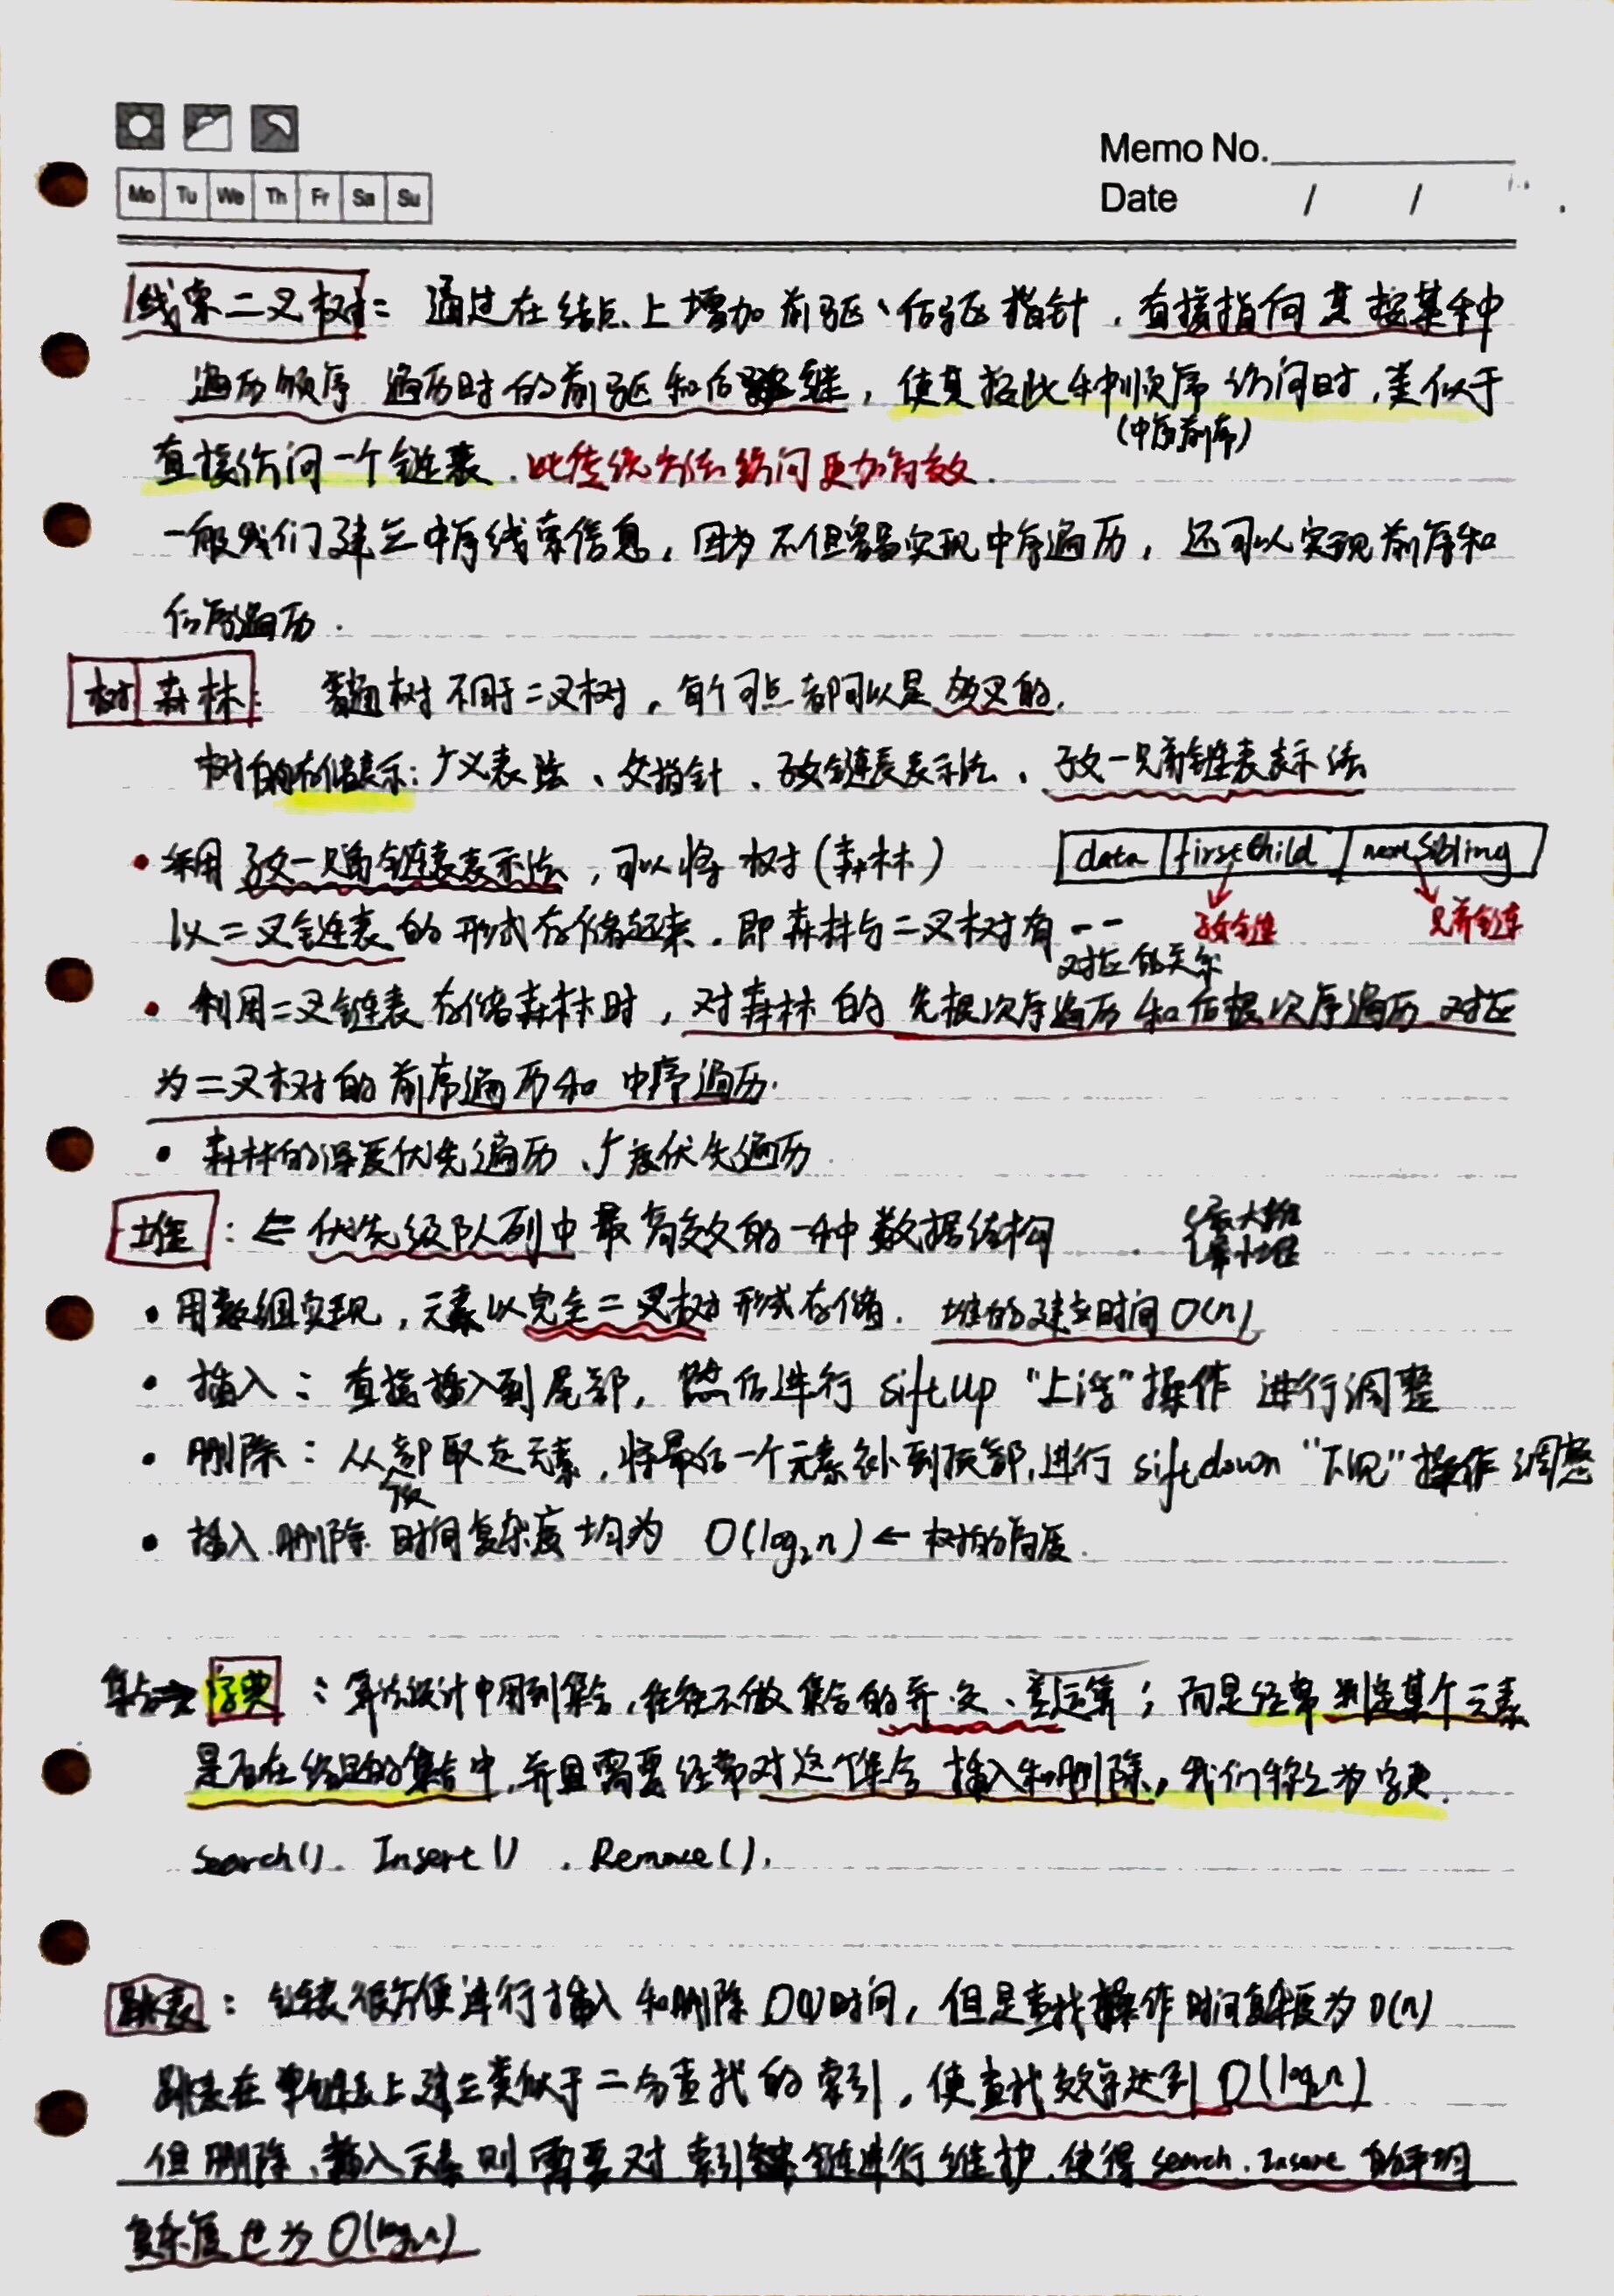 Memo No.
Mo Tu We Th Fr Sa Su
Date / /
线索二叉树: 通过在结点上增加前驱、后驱指针,直接指向其按某种
遍历顺序 遍历时的前驱和后继,使其按此种顺序访问时,类似于
(中序前序)
直接访问一个链表.比传统方法访问更加有效.
一般我们建立中序线索信息,因为不但容易实现中序遍历,还可以实现前序和
后序遍历.
树 森林: 普通树不同于二叉树,每个节点都可以是多叉的.
树的存储表示:广义表法、父指针、子女链表表示法、子女-兄弟链表表示法
• 采用子女-兄弟链表表示法,可以将树(森林)
data firstChild nextSibling
以二叉链表的形式存储起来.即森林与二叉树有一一
子女链 兄弟链
对应的关系
• 利用二叉链表存储森林时,对森林的先根次序遍历和后根次序遍历对应
为二叉树的前序遍历和中序遍历.
• 森林的深度优先遍历、广度优先遍历
堆: ⇐ 优先级队列中最高效的一种数据结构
最大堆
最小堆
• 用数组实现,元素以完全二叉树形式存储. 堆的建立时间O(n)
• 插入: 直接插入到尾部,然后进行 siftUp "上浮"操作 进行调整
• 删除: 从顶部取走元素,将最后一个元素补到顶部,进行 siftdown "下沉"操作调整
• 插入.删除 时间复杂度均为 O(log₂n) ← 树的高度.
集合→字典 : 算法设计中用到集合,往往不做集合的并、交、差运算;而是经常判定某个元素
是否在给定的集合中,并且需要经常对这个集合 插入和删除,我们称之为字典.
Search(). Insert() . Remove().
跳表: 链表很方便进行插入和删除 O(1)时间,但是查找操作时间复杂度为 O(n)
跳表在单链表上建立类似于二分查找的索引,使查找效率达到 O(log₂n)
但删除、插入元素则需要对索引链进行维护.使得 search. Insert 的平均
复杂度也为 O(log₂n)